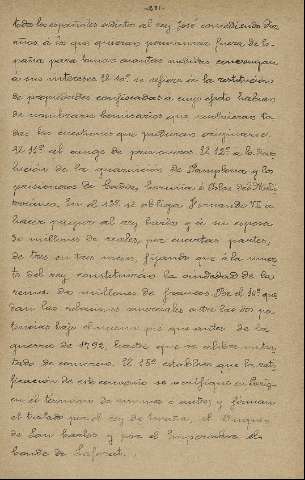 -291-
todo los españoles adictos al rey José concediendo dos
años a los que quieran permanecer fuera de Es-
paña para tomar cuantas medidas convengan
a sus intereses. El 10º se refiere a la restitución
de propiedades confiscadas a cuyo efecto habían
de nombrarse comisarios que resolvieran to-
das las cuestiones que pudieran originarse.
El 11º al cange de prisioneros. El 12º a la devo-
lución de la guarnición de Pamplona y los
prisioneros de Cadiz, Coruña é Islas del Medi-
terráneo. En el 13º se obliga Fernando VII a
hacer pagar al rey Carlos y á su esposa
30 millones de reales, por cuartas partes,
de tres en tres meses, fijando que á la muer-
te del rey constituirán la viudedad de la
reina dos millones de francos. Por el 14º que-
dan las relaciones comerciales entre las dos po-
tencias bajo el mismo pié que antes de la
guerra de 1792, hasta que se celebre un tra-
tado de comercio. El 15º establece que la rati-
ficación de este convenio se verifique en París
en el término de un mes o antes y firman
el tratado por el rey de España, el Duque
de San Carlos y por el Emperador el
Conde de Laforest.